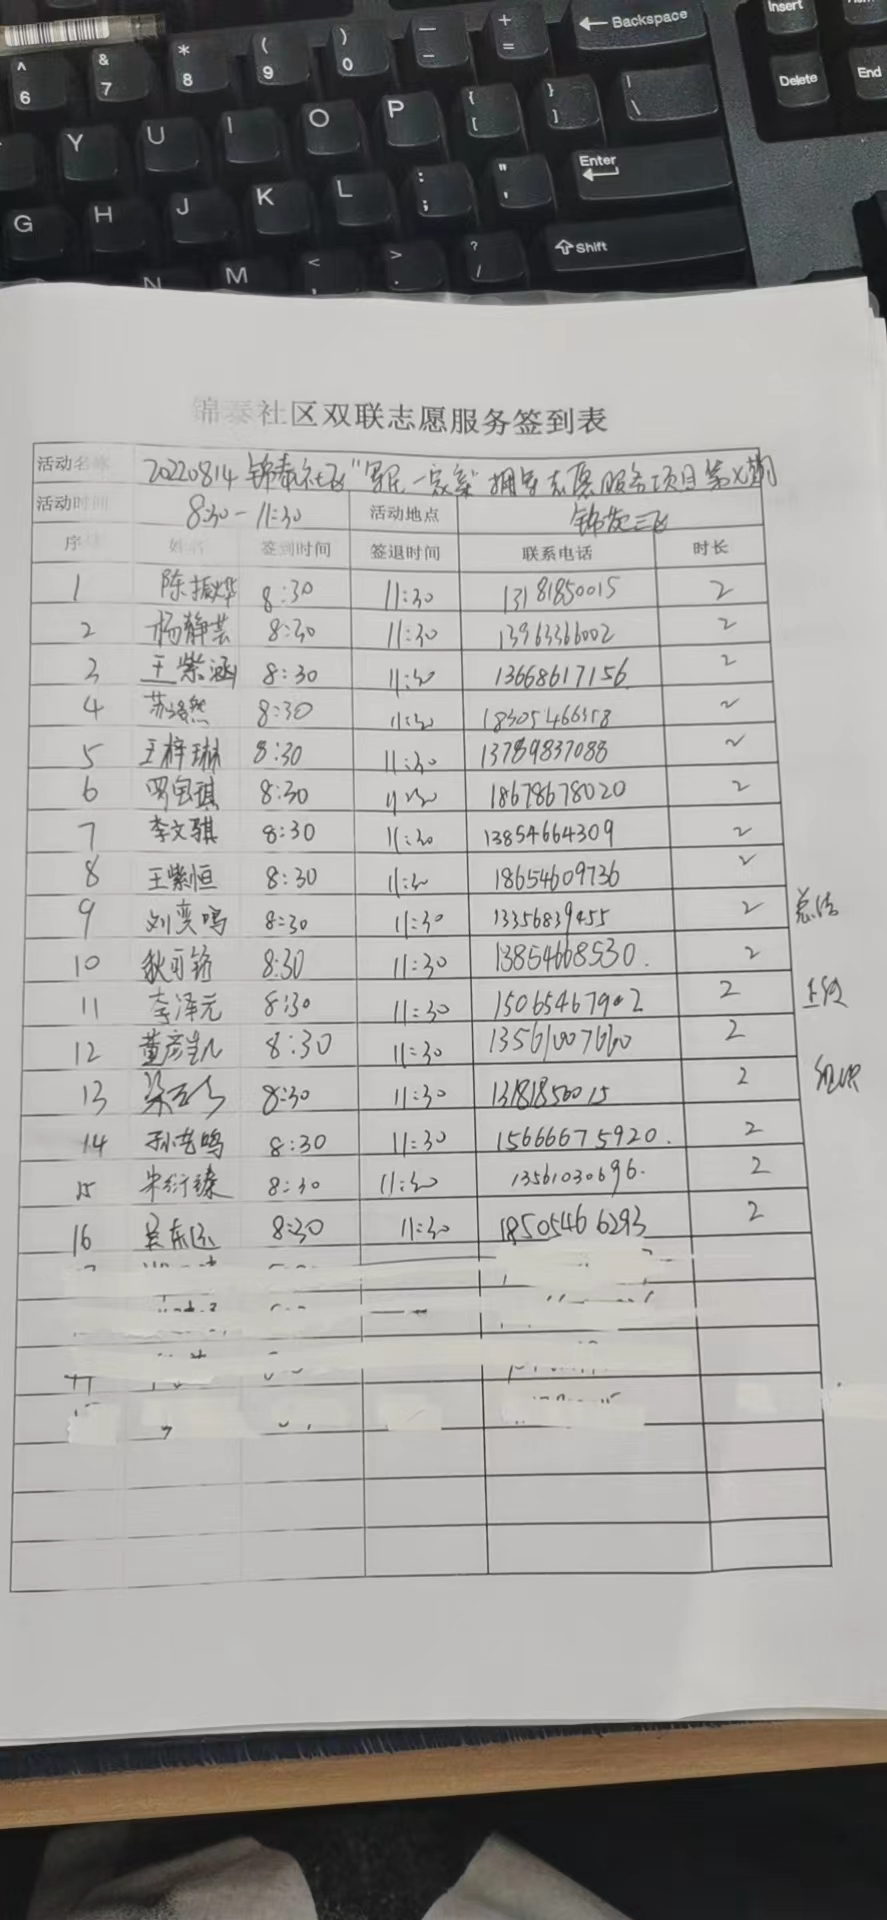 Backspace
Insert
^ 6 & 7 * 8 ( 9 ) 0 — - + =
Delete End
Y U I O P { [ } ] | \
Enter
G H J K L : ; " '
N M < , > . ? / Shift
锦泰社区双联志愿服务签到表
活动名称 20220814 锦泰社区"军民一家亲"拥军志愿服务项目第
活动时间 8:30-11:30 活动地点 锦苑三区
序号 姓名 签到时间 签退时间 联系电话 时长
1 陈振烨 8:30 11:30 13181850015 2
2 杨静芸 8:30 11:30 13963366002 2
3 王紫涵 8:30 11:30 13668617156 2
4 苏 然 8:30 11:30 18305466358 2
5 王梓琳 8:30 11:30 13789837088 2
6 罗宝琪 8:30 11:30 18678678020 2
7 李文骐 8:30 11:30 13854664309 2
8 王紫恒 8:30 11:30 18654609736 2
9 刘奕鸣 8:30 11:30 13356839455 2 总结
10 狄可 8:30 11:30 13854668530. 2
11 李泽元 8:30 11:30 15065467902 2
12 董彦 8:30 11:30 13561007660 2
13 梁 8:30 11:30 13181850015 2 组织
14 孙 鸣 8:30 11:30 15666675920. 2
15 宋衍臻 8:30 11:30 13561030696. 2
16 吴东 8:30 11:30 18505466293 2